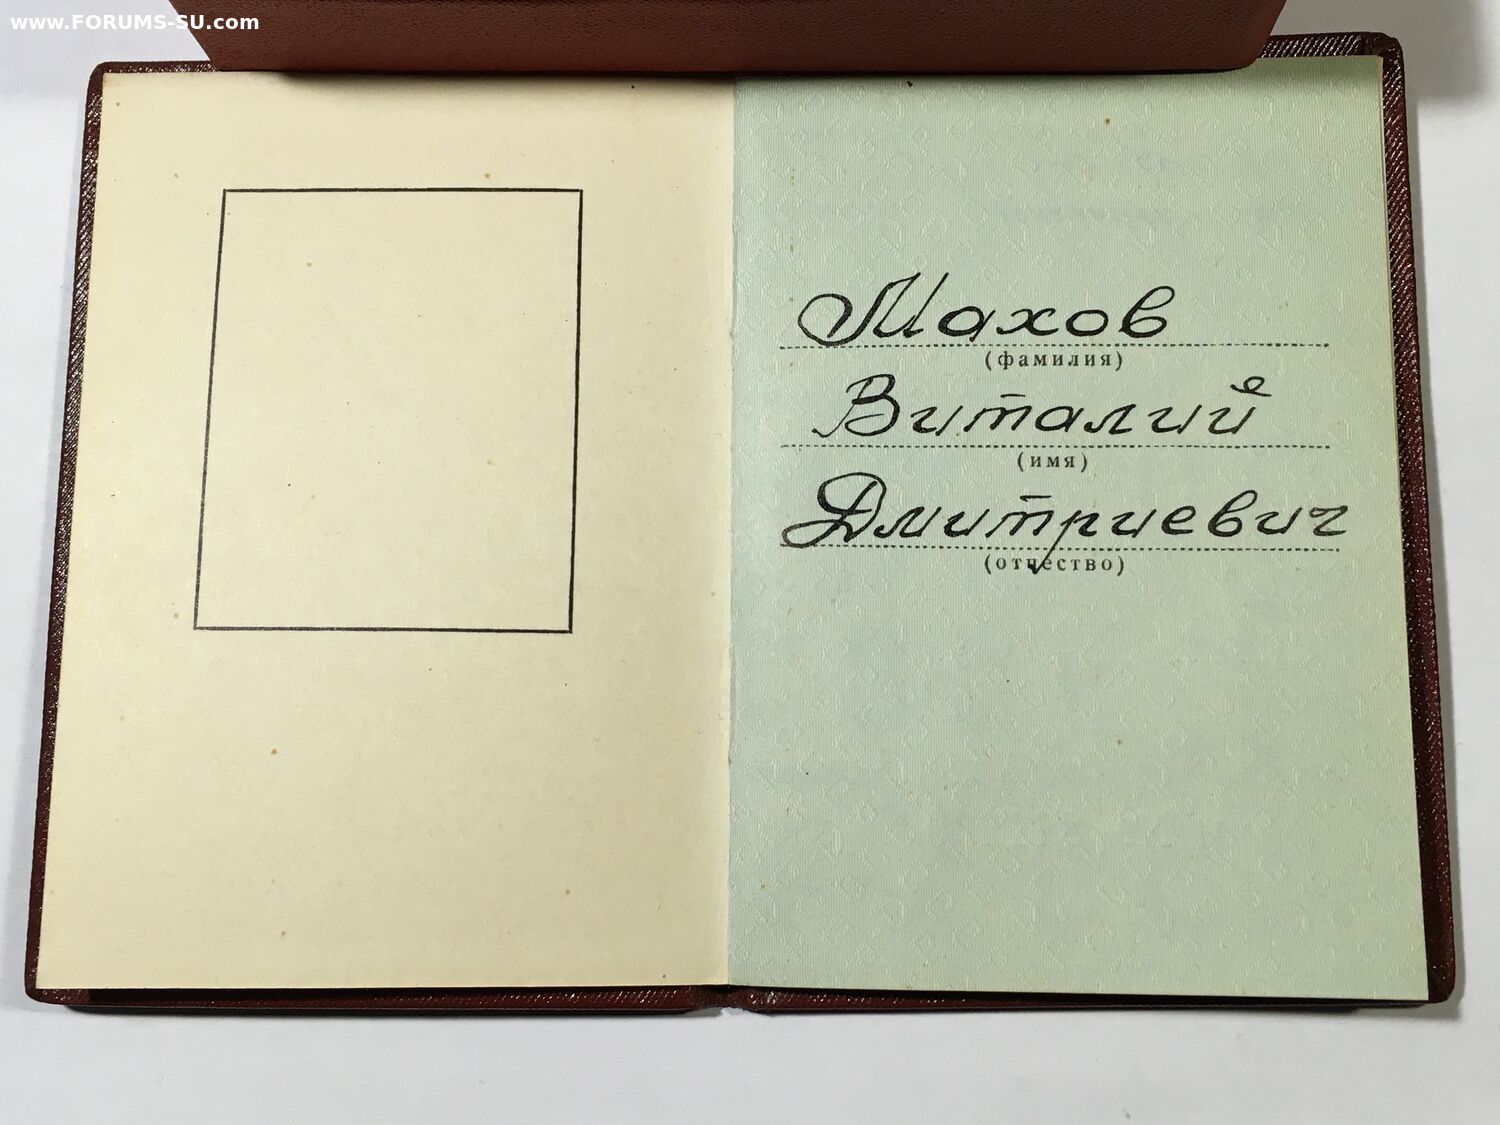 www.FORUMS-SU.com
Махов
(фамилия)
Виталий
(имя)
Дмитриевич
(отчество)